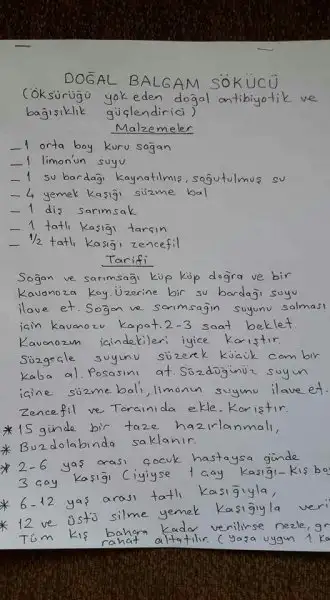 DOĞAL BALGAM SÖKÜCÜ
(Öksürüğü yok eden doğal antibiyotik ve
bağışıklık güçlendirici)
Malzemeler
_1 orta boy kuru soğan
_1 limon'un suyu
_1 su bardağı kaynatılmış, soğutulmuş su
_ 4 yemek kaşığı süzme bal
_ 1 diş sarımsak
_ 1 tatlı kaşığı tarçın
_ 1/2 tatlı kaşığı zencefil
Tarifi
Soğan ve sarımsağı küp küp doğra ve bir
kavanoza koy. Üzerine bir su bardağı suyu
ilave et. Soğan ve sarımsağın suyunu salması
için kavanozu kapat. 2-3 saat beklet.
Kavanozun içindekileri iyice karıştır.
Süzgeçle suyunu süzerek küçük cam bir
kaba al. Posasını at. Süzdüğünüz suyun
içine süzme balı, limonun suyunu ilave et.
Zencefil ve Tarçınıda ekle. Karıştır.
* 15 günde bir taze hazırlanmalı,
* Buzdolabında saklanır.
* 2-6 yaş arası çocuk hastaysa günde
3 çay kaşığı (iyiyse 1 çay kaşığı-Kış bo
* 6-12 yaş arası tatlı kaşığıyla,
* 12 ve üstü silme yemek kaşığıyla veri
Tüm kış bahara kadar verilirse nezle, gr
rahat atlatılır. (yaşa uygun 1 ka